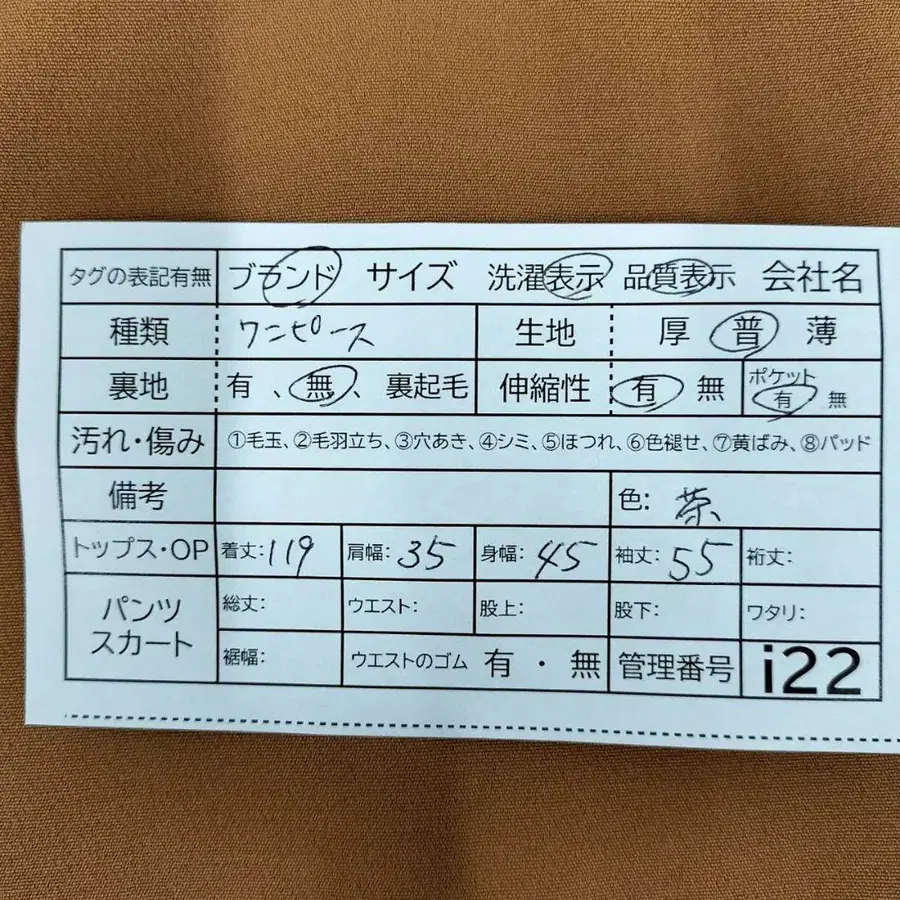 タグの表記有無 ブランド サイズ 洗濯表示 品質表示 会社名
種類 ワンピース 生地 厚 普 薄
裏地 有、無、裏起毛 伸縮性 有 無 ポケット 有 無
汚れ・傷み ①毛玉、②毛羽立ち、③穴あき、④シミ、⑤ほつれ、⑥色褪せ、⑦黄ばみ、⑧パッド
備考 色: 茶
トップス・OP 着丈:119 肩幅:35 身幅:45 袖丈:55 裄丈:
パンツ スカート 総丈: ウエスト: 股上: 股下: ワタリ:
裾幅: ウエストのゴム 有・無 管理番号 i22